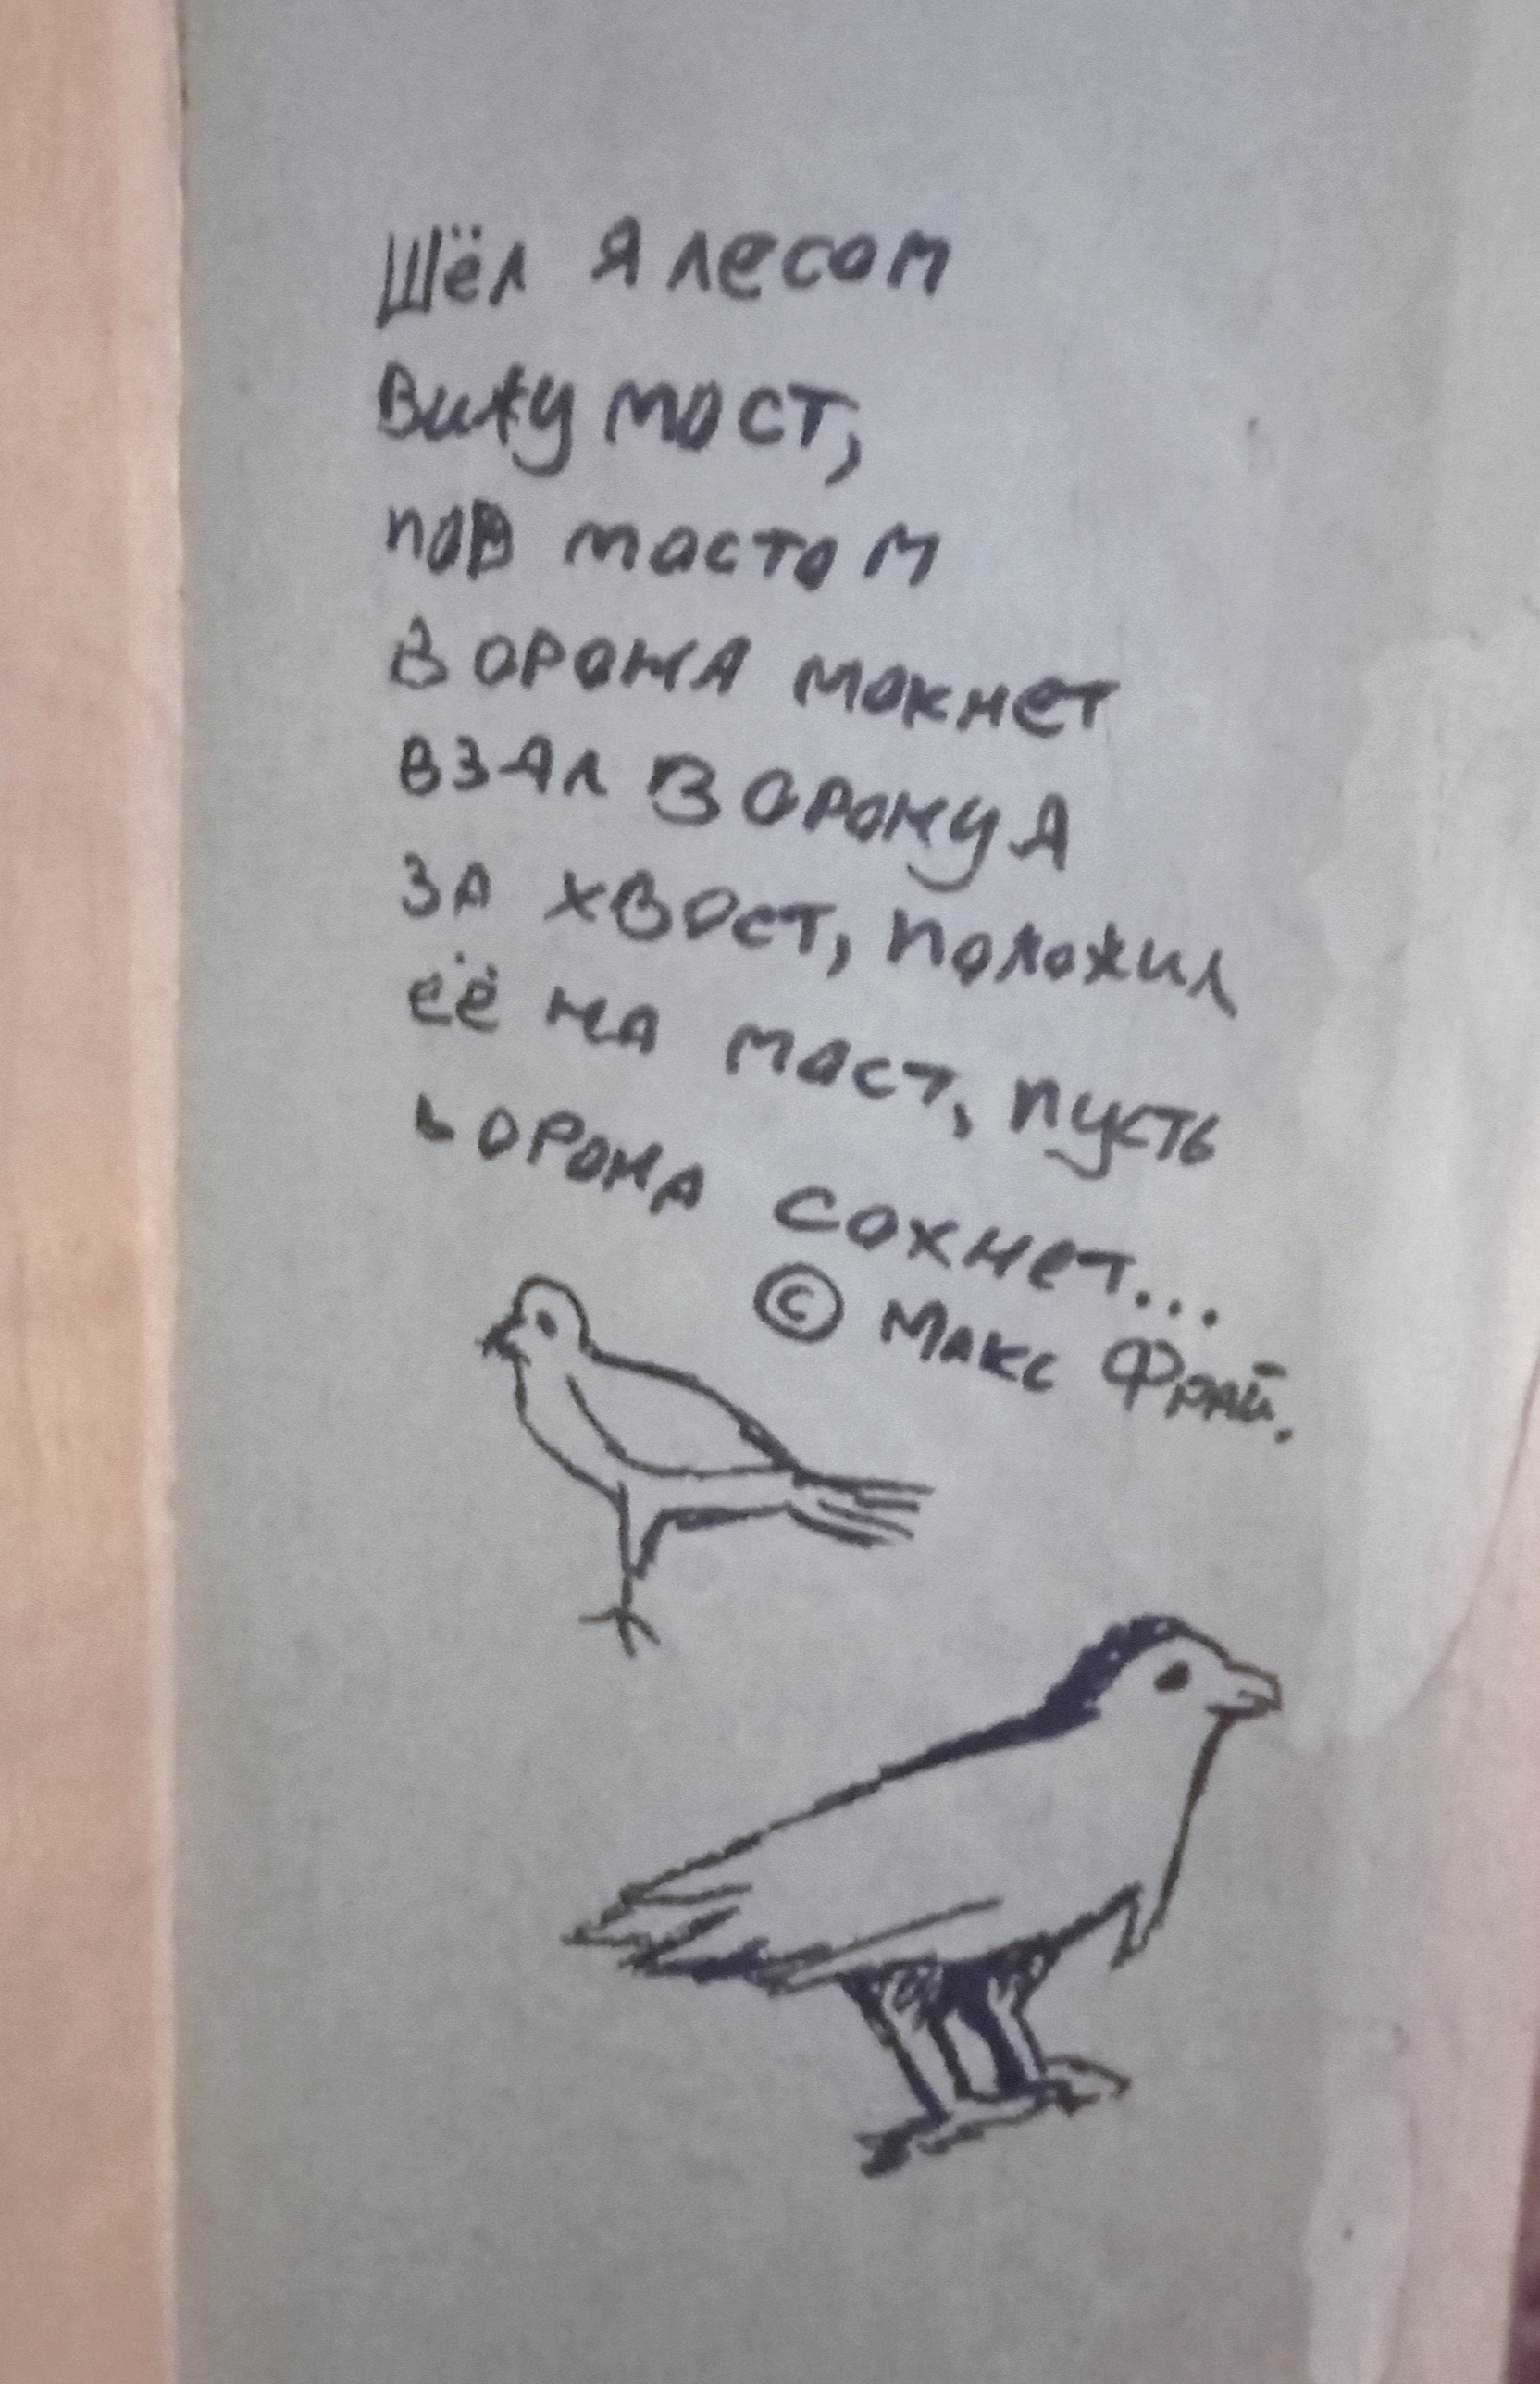 Шёл я лесом
Вижу мост,
под мостом
Ворона мокнет
взял Ворону я
за хвост, положил
её на мост, пусть
ворона сохнет...
© Макс Фрай.